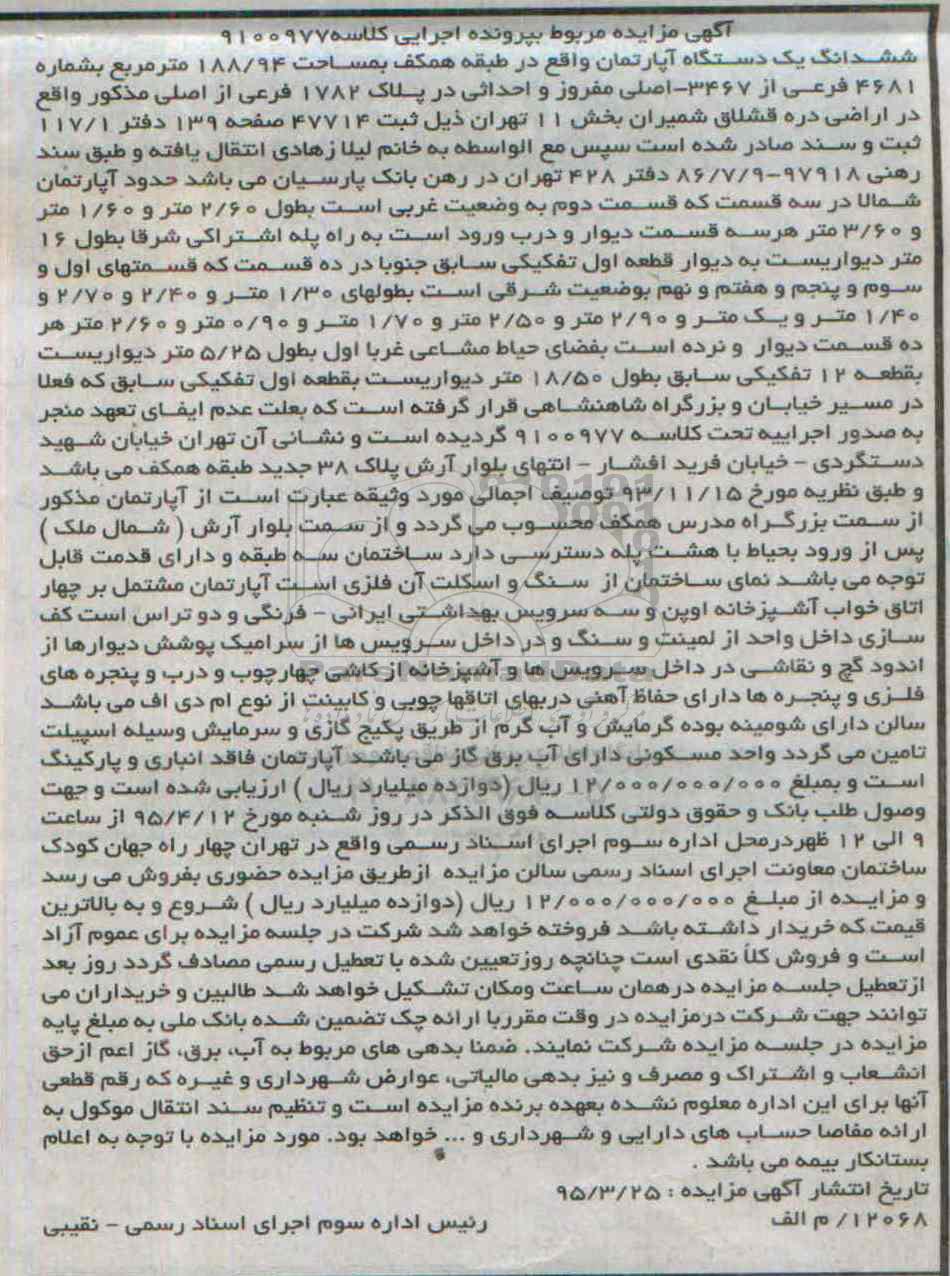 آگهی مزایده مربوط بپرونده اجرایی کلاسه۹۱۰۰۹۷۷
ششدانگ یک دستگاه آپارتمان واقع در طبقه همکف بمساحت ۱۸۸/۹۴ مترمربع بشماره
۴۶۸۱ فرعی از ۳۴۶۷-اصلی مفروز و احداثی در پلاک ۱۷۸۲ فرعی از اصلی مذکور واقع
در اراضی دره قشلاق شمیران بخش ۱۱ تهران ذیل ثبت ۴۷۷۱۴ صفحه ۱۳۹ دفتر ۱۱۷/۱
ثبت و سند صادر شده است سپس مع الواسطه به خانم لیلا زهادی انتقال یافته و طبق سند
رهنی ۹۷۹۱۸-۸۶/۷/۹ دفتر ۴۲۸ تهران در رهن بانک پارسیان می باشد حدود آپارتمان
شمالا در سه قسمت که قسمت دوم به وضعیت غربی است بطول ۲/۶۰ متر و ۱/۶۰ متر
و ۳/۶۰ متر هرسه قسمت دیوار و درب ورود است به راه پله اشتراکی شرقا بطول ۱۶
متر دیواریست به دیوار قطعه اول تفکیکی سابق جنوبا در ده قسمت که قسمتهای اول و
سوم و پنجم و هفتم و نهم بوضعیت شرقی است بطولهای ۱/۳۰ متر و ۲/۴۰ و ۲/۷۰ و
۱/۴۰ متر و یک متر و ۲/۹۰ متر و ۲/۵۰ متر و ۱/۷۰ متر و ۰/۹۰ متر و ۲/۶۰ متر هر
ده قسمت دیوار و نرده است بفضای حیاط مشاعی غربا اول بطول ۵/۲۵ متر دیواریست
بقطعه ۱۲ تفکیکی سابق بطول ۱۸/۵۰ متر دیواریست بقطعه اول تفکیکی سابق که فعلا
در مسیر خیابان و بزرگراه شاهنشاهی قرار گرفته است که بعلت عدم ایفای تعهد منجر
به صدور اجراییه تحت کلاسه ۹۱۰۰۹۷۷ گردیده است و نشانی آن تهران خیابان شهید
دستگردی - خیابان فرید افشار - انتهای بلوار آرش پلاک ۳۸ جدید طبقه همکف می باشد
و طبق نظریه مورخ ۹۳/۱۱/۱۵ توصیف اجمالی مورد وثیقه عبارت است از آپارتمان مذکور
از سمت بزرگراه مدرس همکف محسوب می گردد و از سمت بلوار آرش ( شمال ملک )
پس از ورود بحیاط با هشت پله دسترسی دارد ساختمان سه طبقه و دارای قدمت قابل
توجه می باشد نمای ساختمان از سنگ و اسکلت آن فلزی است آپارتمان مشتمل بر چهار
اتاق خواب آشپزخانه اوپن و سه سرویس بهداشتی ایرانی - فرنگی و دو تراس است کف
سازی داخل واحد از لمینت و سنگ و در داخل سرویس ها از سرامیک پوشش دیوارها از
اندود گچ و نقاشی در داخل سرویس ها و آشپزخانه از کاشی چهارچوب و درب و پنجره های
فلزی و پنجره ها دارای حفاظ آهنی دربهای اتاقها چوبی و کابینت از نوع ام دی اف می باشد
سالن دارای شومینه بوده گرمایش و آب گرم از طریق پکیج گازی و سرمایش وسیله اسپیلت
تامین می گردد واحد مسکونی دارای آب برق گاز می باشد آپارتمان فاقد انباری و پارکینگ
است و بمبلغ ۱۲/۰۰۰/۰۰۰/۰۰۰ ریال (دوازده میلیارد ریال ) ارزیابی شده است و جهت
وصول طلب بانک و حقوق دولتی کلاسه فوق الذکر در روز شنبه مورخ ۹۵/۴/۱۲ از ساعت
۹ الی ۱۲ ظهردرمحل اداره سوم اجرای اسناد رسمی واقع در تهران چهار راه جهان کودک
ساختمان معاونت اجرای اسناد رسمی سالن مزایده ازطریق مزایده حضوری بفروش می رسد
و مزایده از مبلغ ۱۲/۰۰۰/۰۰۰/۰۰۰ ریال (دوازده میلیارد ریال ) شروع و به بالاترین
قیمت که خریدار داشته باشد فروخته خواهد شد شرکت در جلسه مزایده برای عموم آزاد
است و فروش کلاً نقدی است چنانچه روزتعیین شده با تعطیل رسمی مصادف گردد روز بعد
ازتعطیل جلسه مزایده درهمان ساعت ومکان تشکیل خواهد شد طالبین و خریداران می
توانند جهت شرکت درمزایده در وقت مقرربا ارائه چک تضمین شده بانک ملی به مبلغ پایه
مزایده در جلسه مزایده شرکت نمایند. ضمنا بدهی های مربوط به آب، برق، گاز اعم ازحق
انشعاب و اشتراک و مصرف و نیز بدهی مالیاتی، عوارض شهرداری و غیره که رقم قطعی
آنها برای این اداره معلوم نشده بعهده برنده مزایده است و تنظیم سند انتقال موکول به
ارائه مفاصا حساب های دارایی و شهرداری و ... خواهد بود. مورد مزایده با توجه به اعلام
بستانکار بیمه می باشد .
تاریخ انتشار آگهی مزایده : ۹۵/۳/۲۵
۱۲۰۶۸/ م الف
رئیس اداره سوم اجرای اسناد رسمی - نقیبی